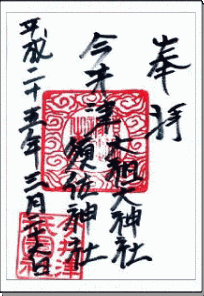 奉拝
今井津
大祖大神社
須佐神社
平成二十五年三月二十日